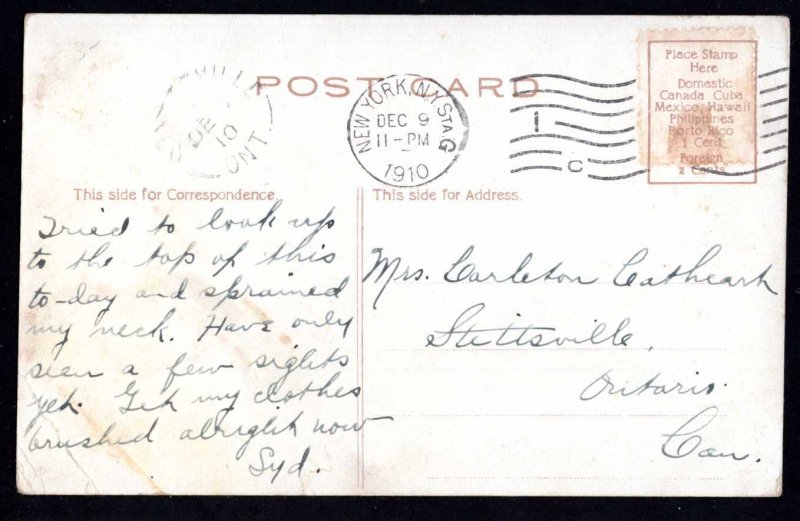 POST CARD
VILLE
DE
10
ONT.
NEW YORK, N.Y. STA G
DEC 9
11-PM
1910
1
C
Place Stamp
Here
Domestic
Canada Cuba
Mexico, Hawaii
Philippines
Porto Rico
1 Cent
Foreign
2 Cents
This side for Correspondence.
This side for Address.
Tried to look up
to the top of this
to-day and sprained
my neck. Have only
seen a few sights
yet. Get my clothes
brushed alright now
Syd.
Mrs. Carleton Cathcart
Stittsville,
Ontario.
Can.